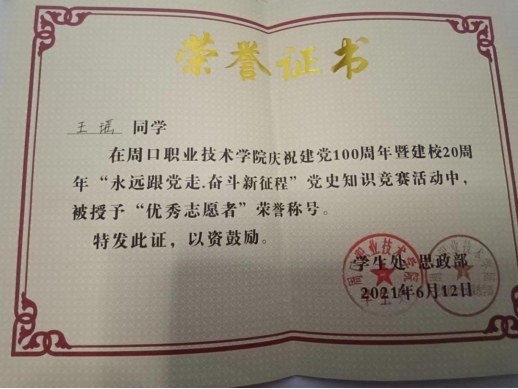 荣誉证书
王瑶 同学
在周口职业技术学院庆祝建党100周年暨建校20周
年“永远跟党走.奋斗新征程”党史知识竞赛活动中,
被授予“优秀志愿者”荣誉称号。
特发此证，以资鼓励。
学生处 思政部
2021年6月12日